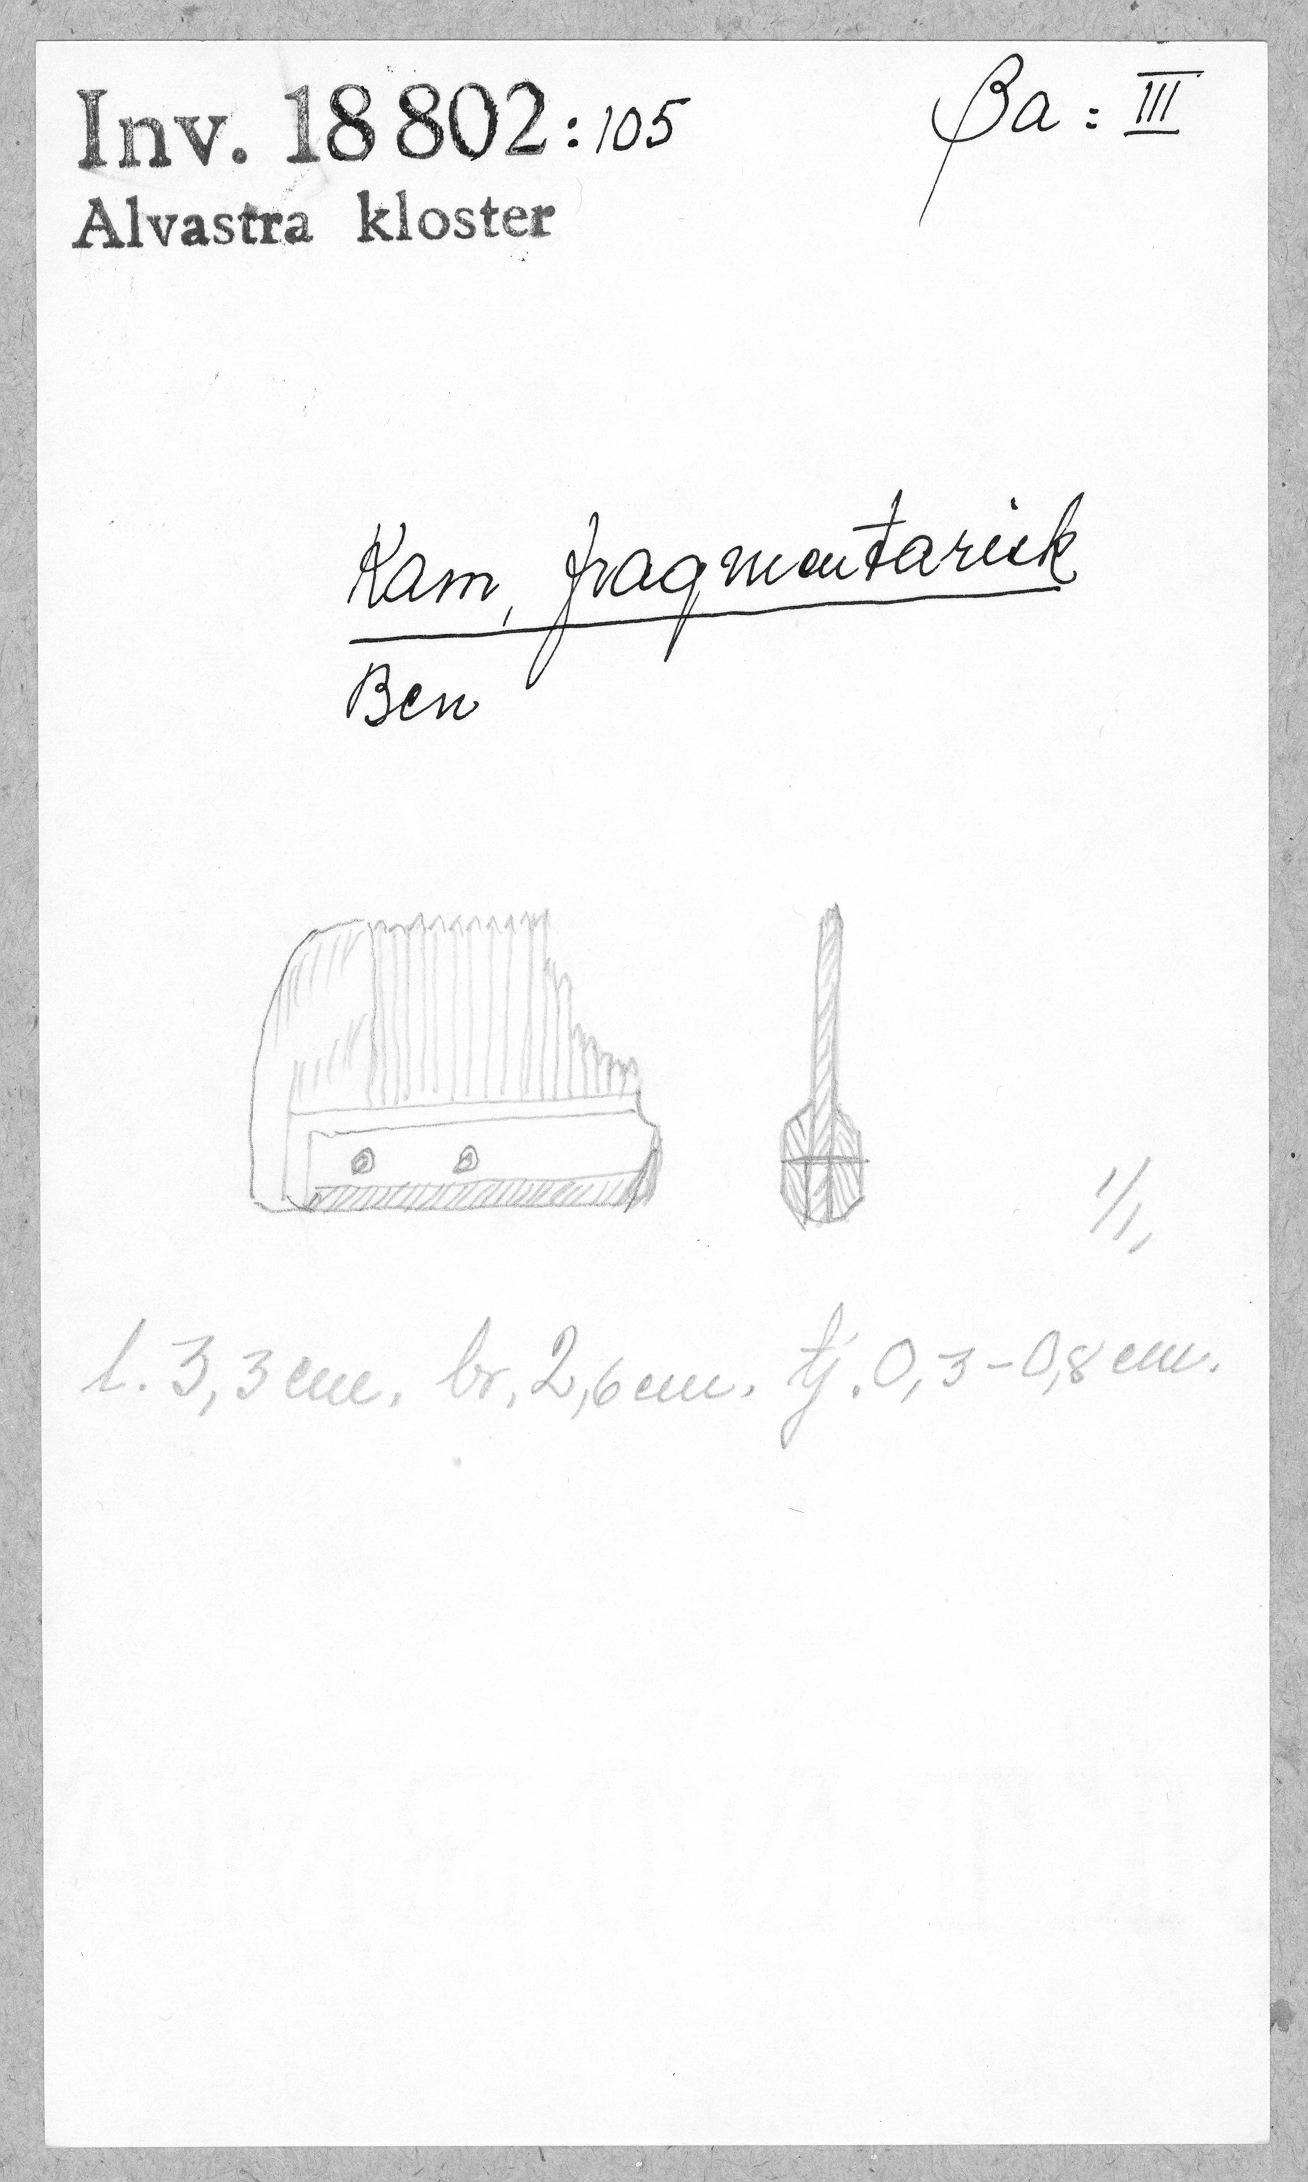 Inv. 18 802:105
βa: III
Alvastra kloster
Kam, fragmentarisk
Ben
1/1,
l. 3,3 cm. br. 2,6 cm. tj. 0,3-0,8 cm.